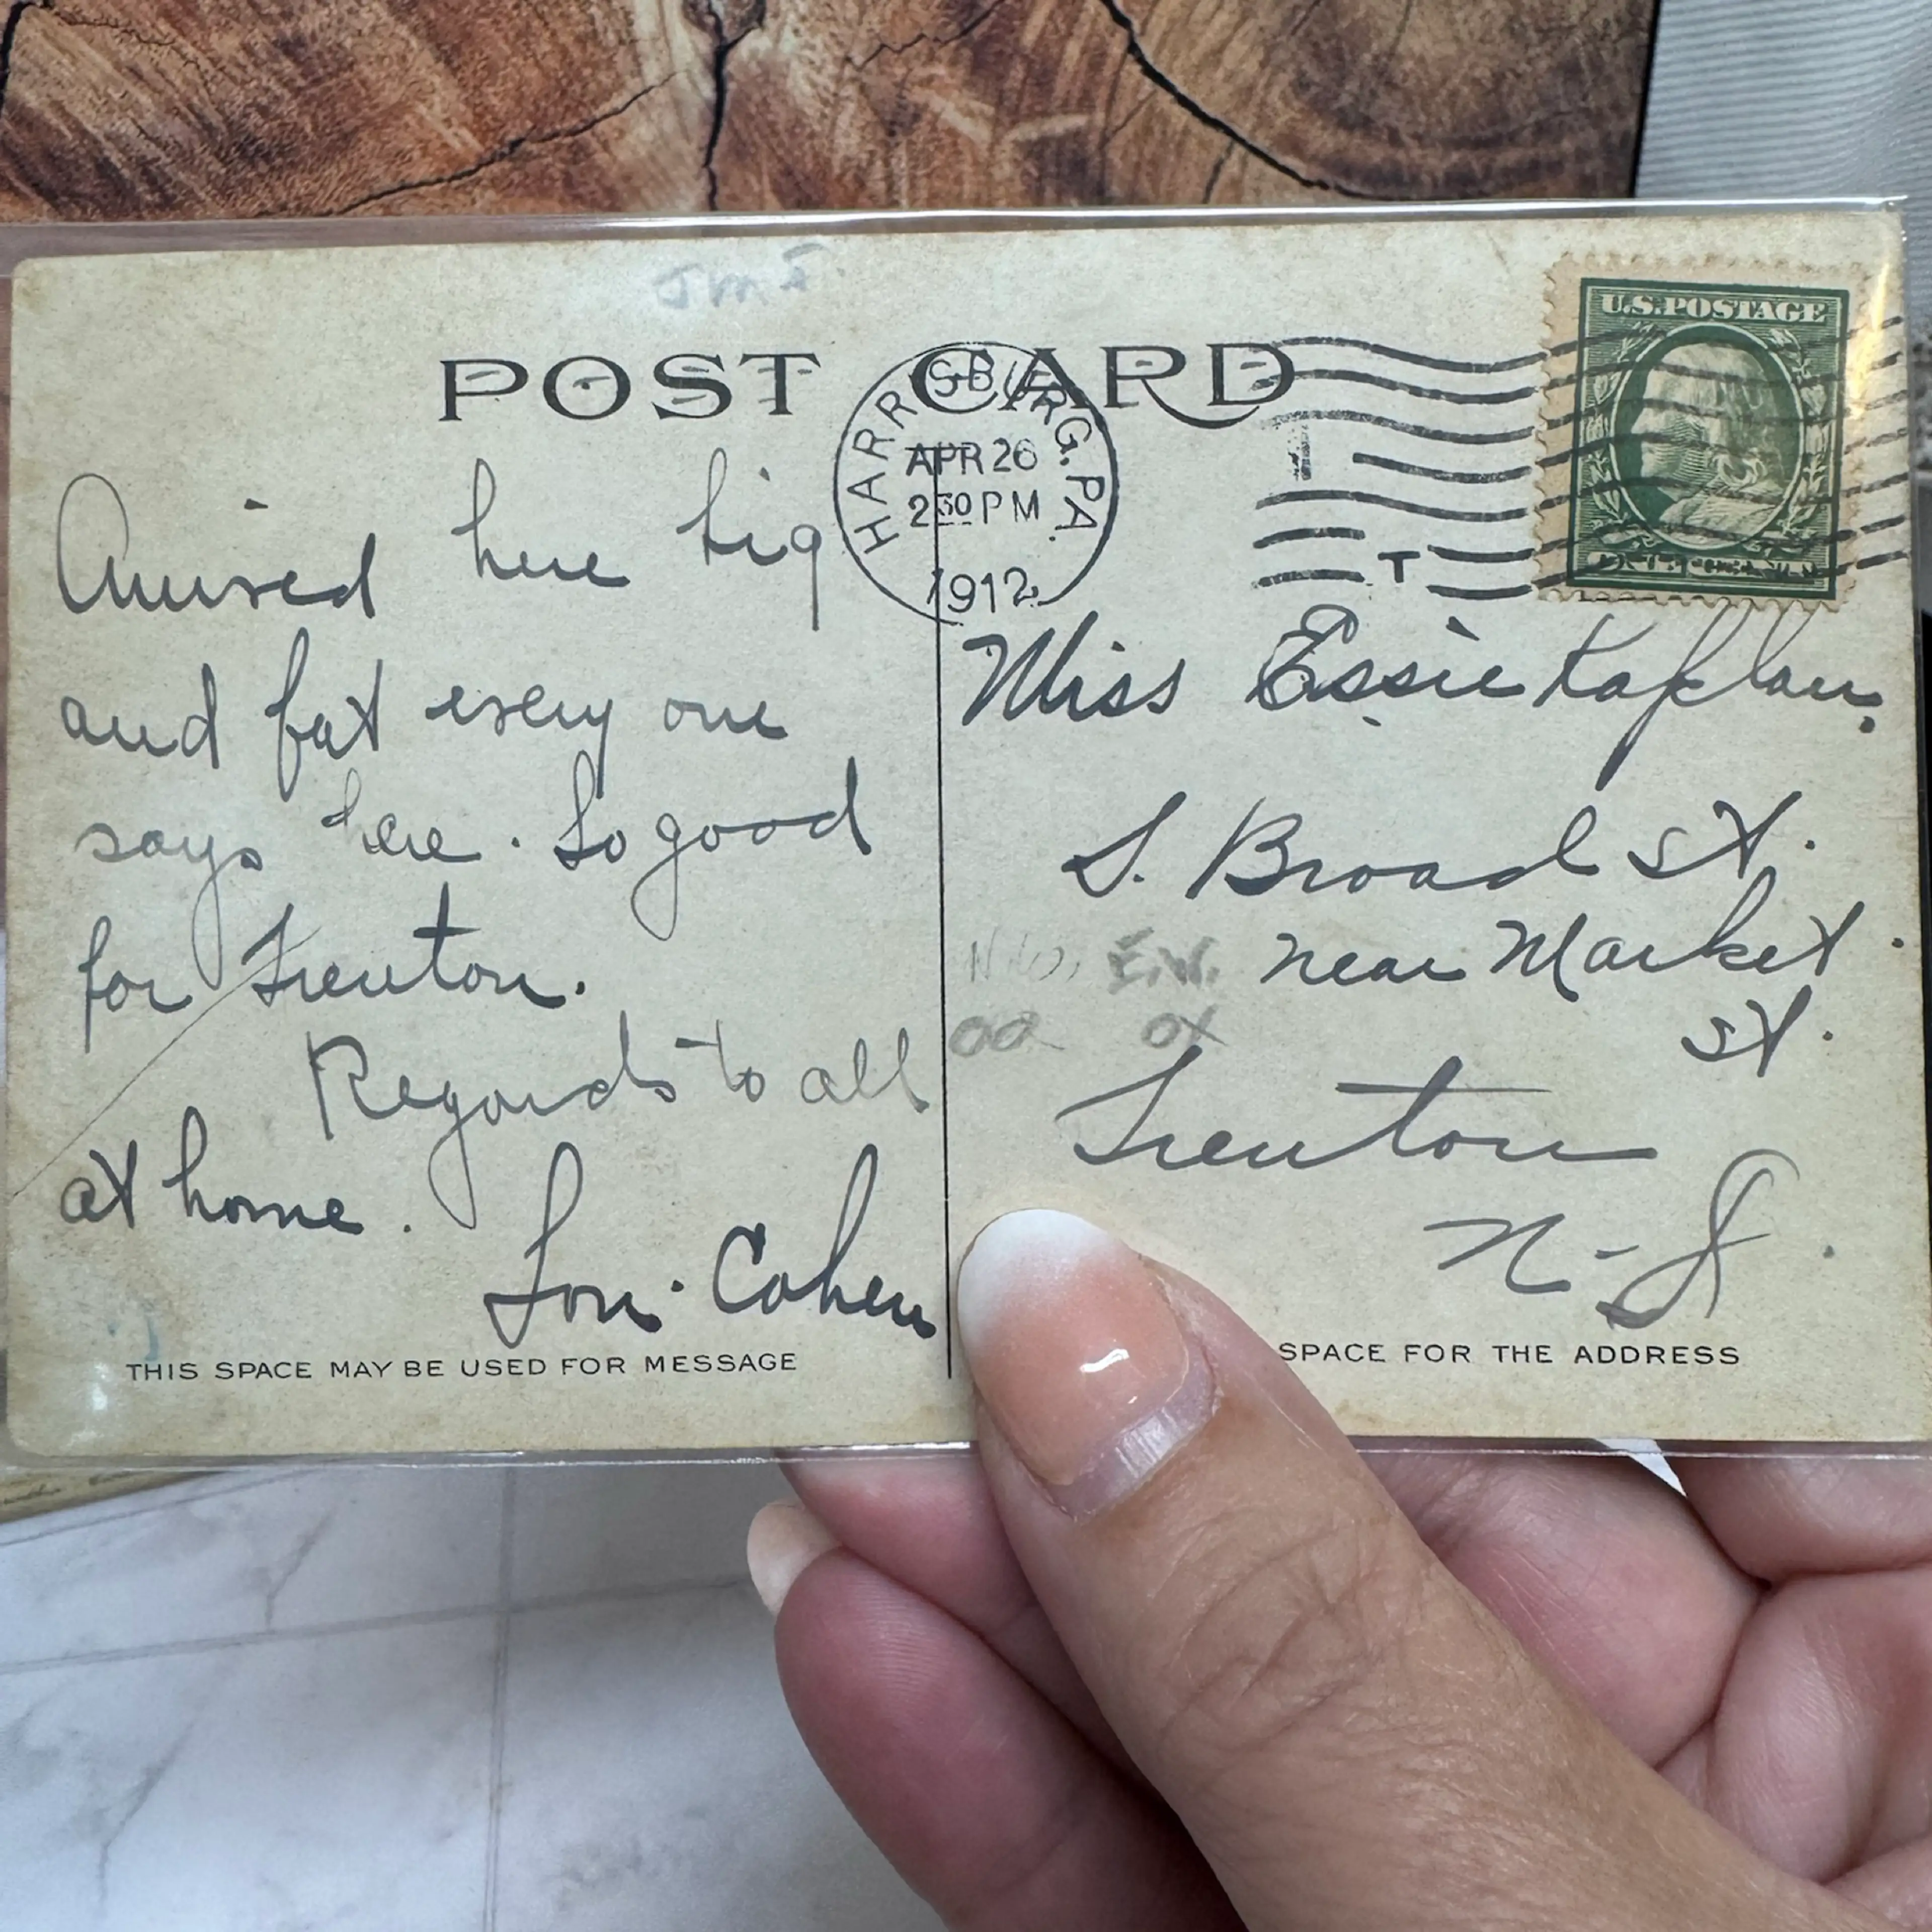 POST CARD
HARRISBURG, PA.
APR 26
2 30 PM
1912
T
U.S. POSTAGE
Arrived here big
and fat every one
says here. So good
for Trenton.
Regards to all
at home.
Lou. Cohen
THIS SPACE MAY BE USED FOR MESSAGE
Miss Essie Kaplan.
S. Broad St.
near Market.
St.
Trenton
N-J.
E.W.
SPACE FOR THE ADDRESS